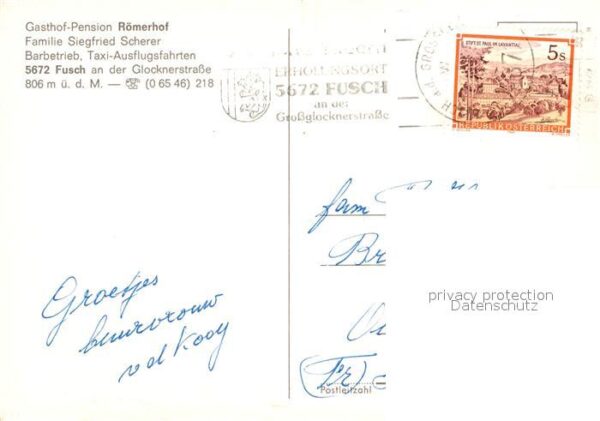 Gasthof-Pension Römerhof
Familie Siegfried Scherer
Barbetrieb, Taxi-Ausflugsfahrten
5672 Fusch an der Glocknerstraße
806 m ü. d. M. — ☏ (0 65 46) 218
ERHOLUNGSORT
5672 FUSCH
an der
Großglocknerstraße
STIFT ST. PAUL IM LAVANTTAL
5s
REPUBLIK ÖSTERREICH
fam
Br
privacy protection
Datenschutz
Groetjes
buurvrouw
v d Kooy
(Fr)
Postleitzahl